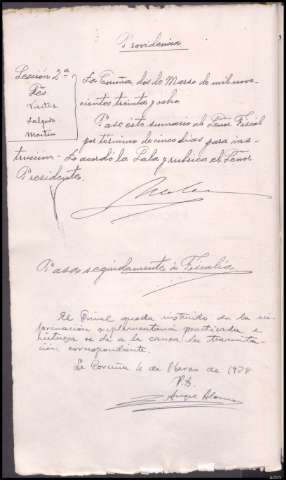 Providencia
Sección 2ª
Pte
Salgado
Martín
La Coruña dos de Marzo de mil nove-
cientos treinta y ocho
Pase este sumario al Señor Fiscal
por término de cinco días para ins-
trucción - Lo acordó la Sala y rubrica el Señor
Presidente
Pasa seguidamente a Fiscalía
El Fiscal queda instruido de la in-
formación suplementaria practicada e
se dé a la causa la tramita-
ción correspondiente.
La Coruña 4 de Marzo de 1938
P.D.